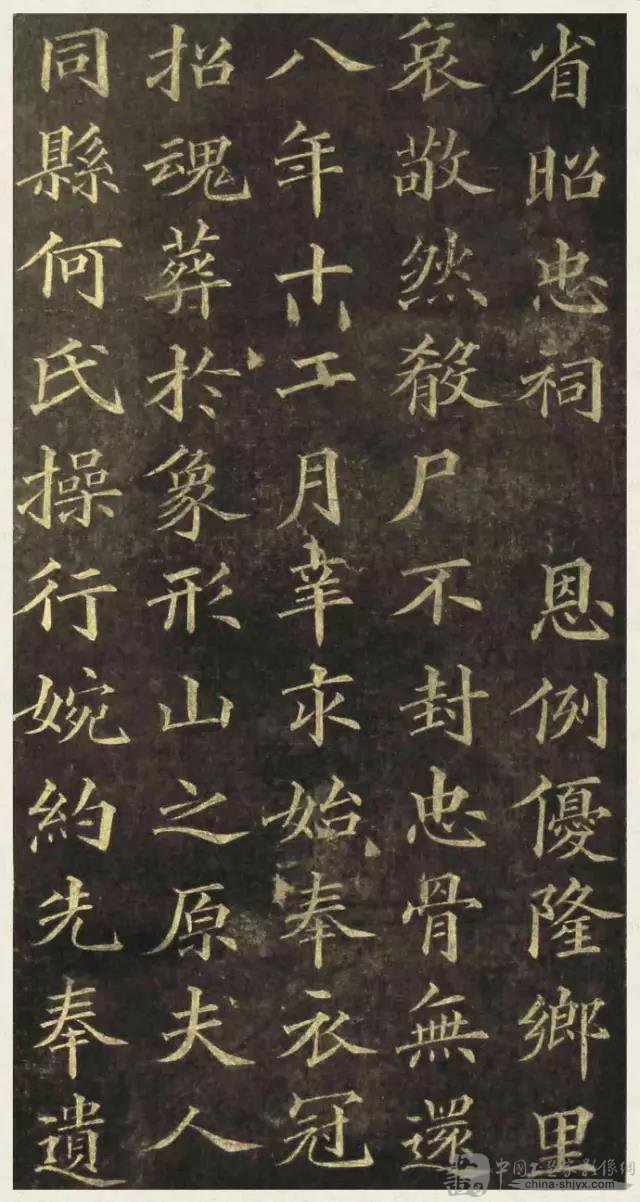 省昭忠祠 恩例優隆鄉里
哀敬然殽尸不封忠骨無還
八年十二月辛未始奉衣冠
招魂葬於象形山之原夫人
同縣何氏操行婉約先奉遺
china-shjyx.com